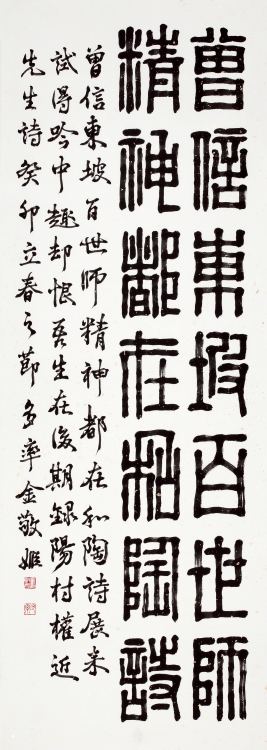 曾信東坡百世師
精神都在和陶詩
曾信東坡百世師精神都在和陶詩展来
試得吟中趣却恨吾生在後期錄陽村權近
先生詩癸卯立春之節多率金敬姬